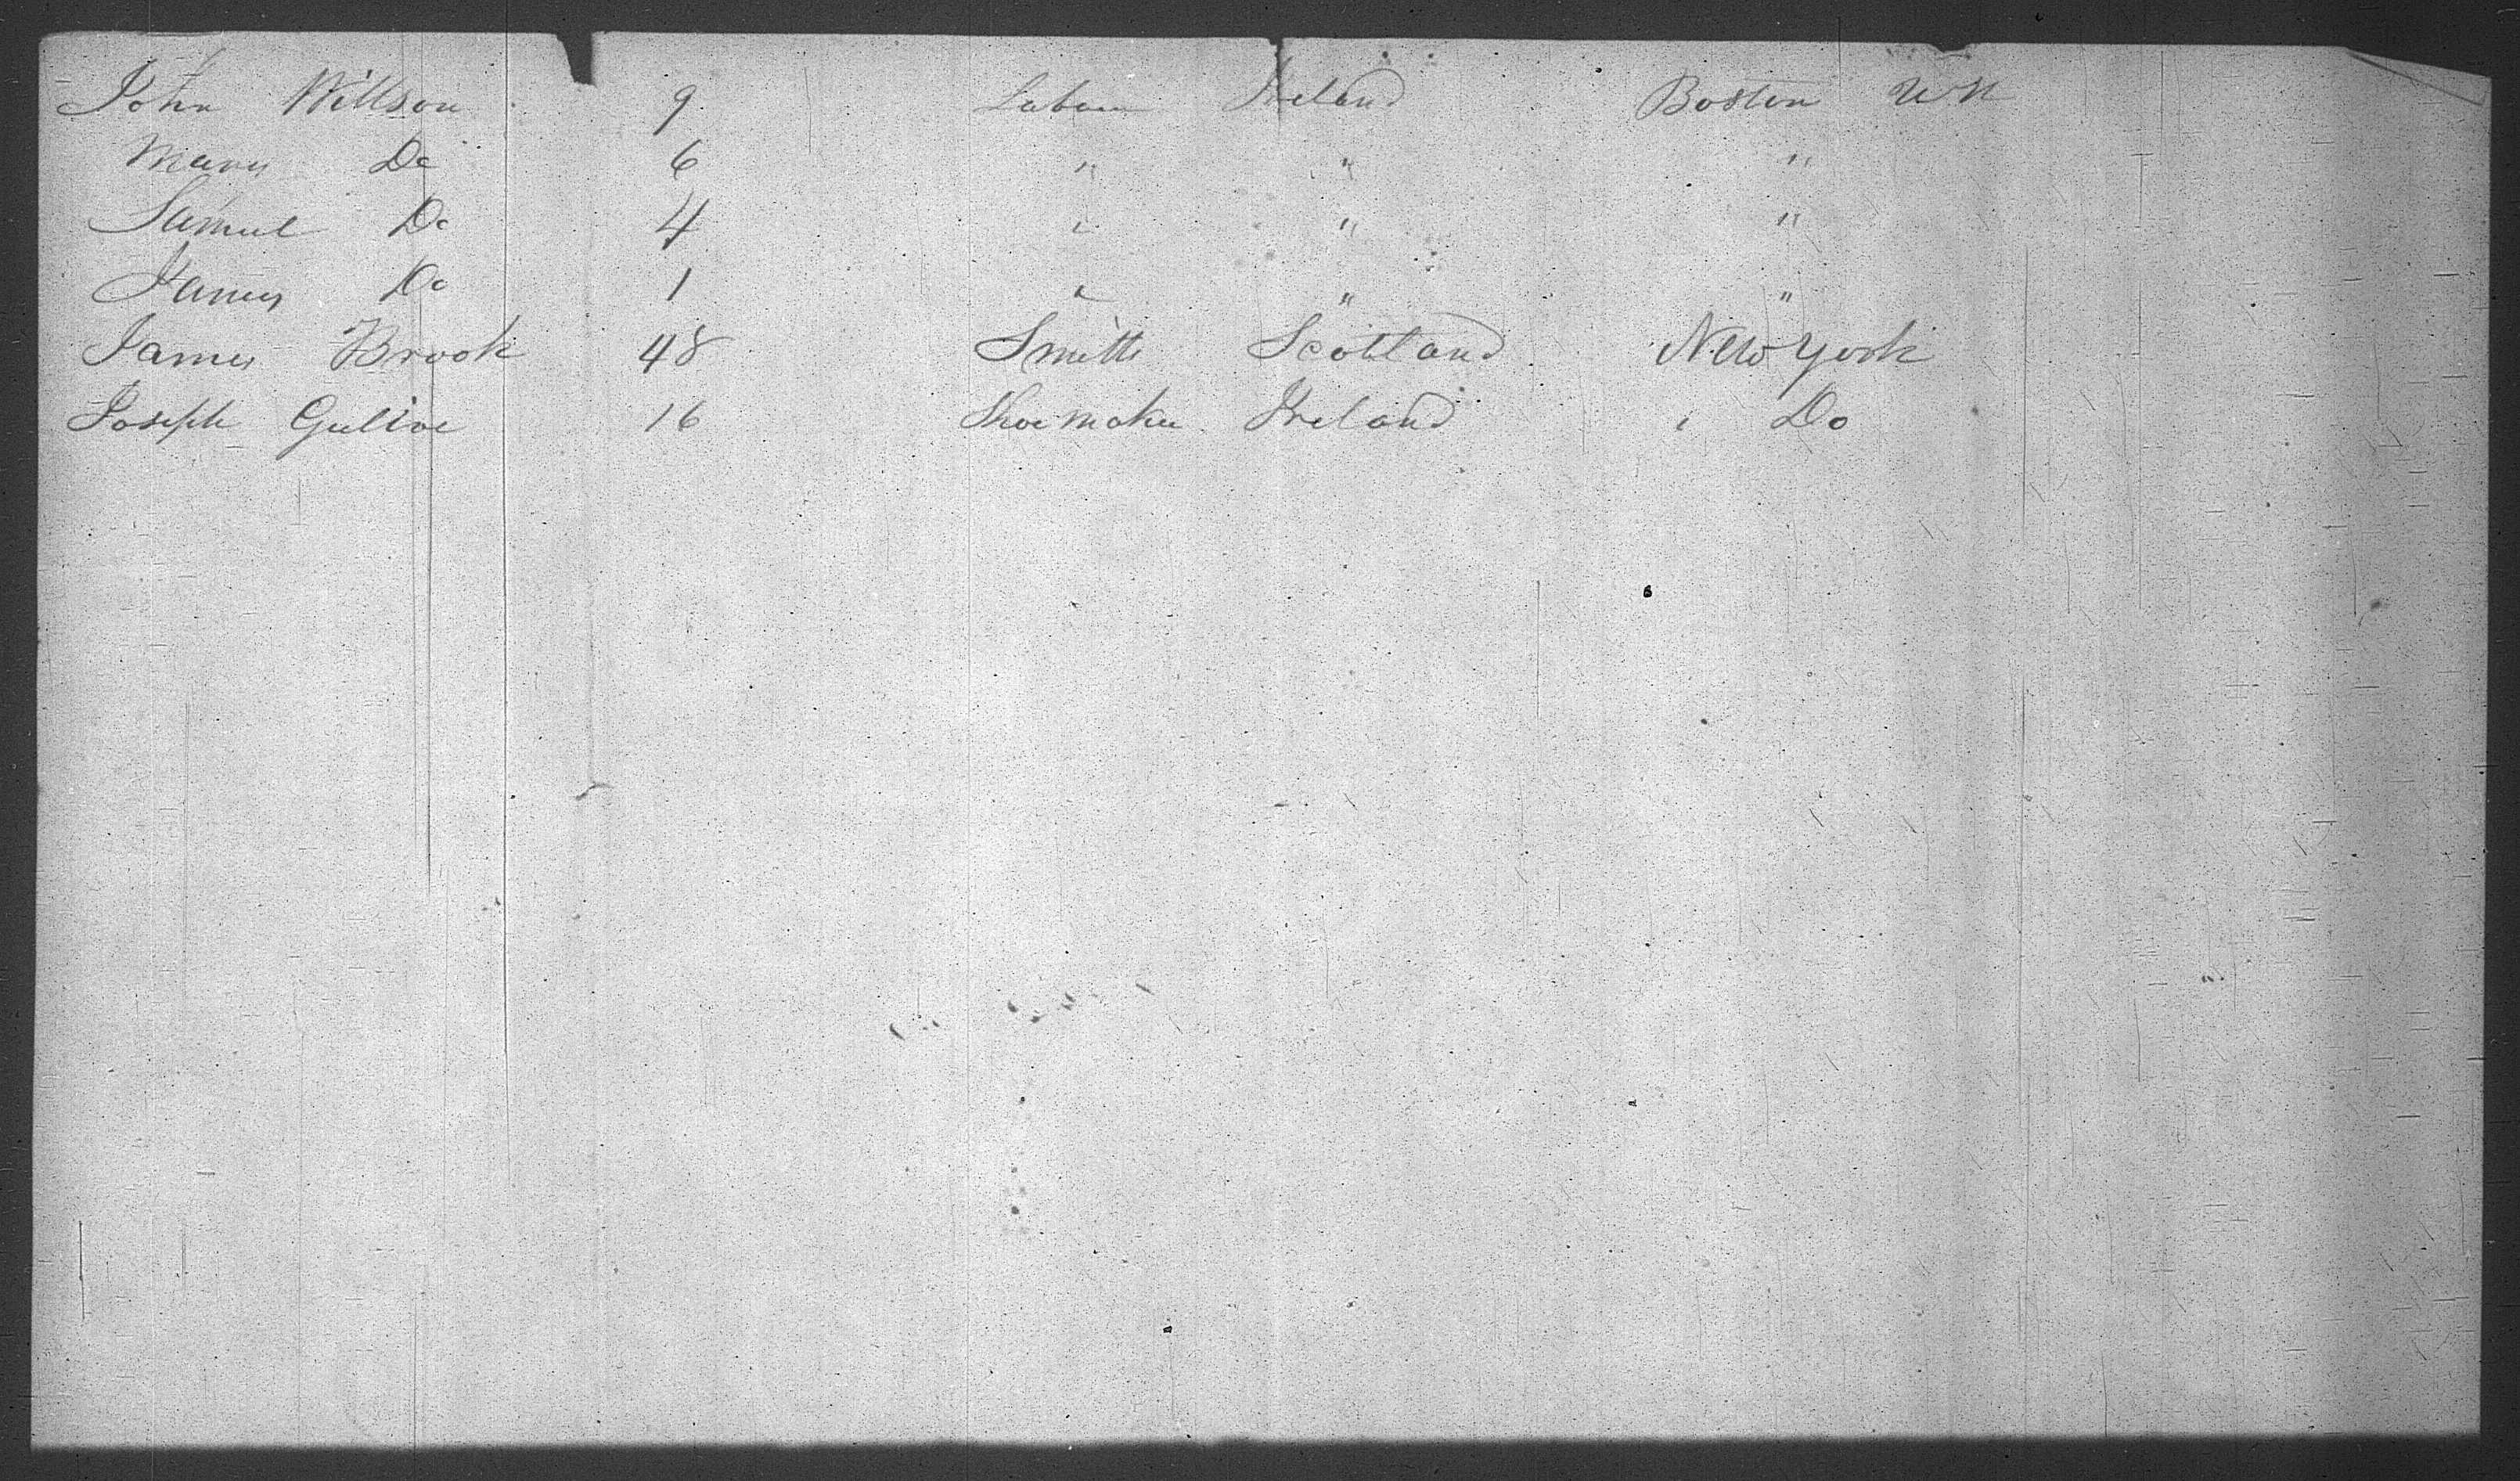 John Willson 9 Labour Ireland Boston
Mary Do 6 " " "
Samuel Do 4 " " "
James Do 1 " " "
James Brook 48 Smith Scotland New York
Joseph 16 Shoe maker Ireland " Do